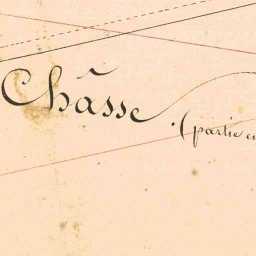 Châsse
(partie